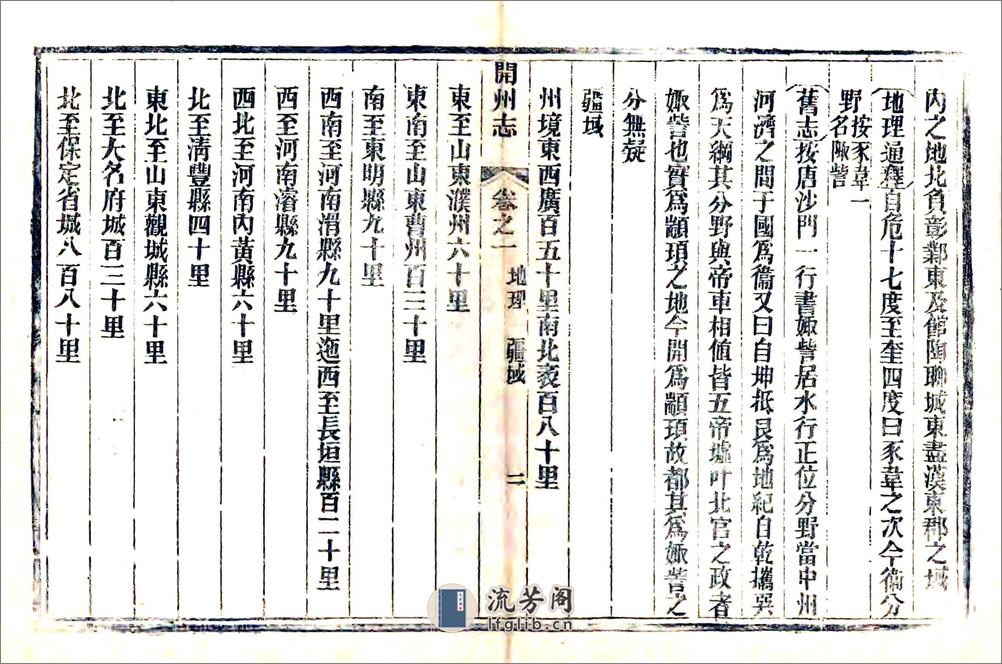 內之地北負彰鄴東及館陶聊城東盡漢東郡之域
地理通釋自危十七度至奎四度曰豕韋之次今衞分
野按豕韋一
名陬訾
舊志按唐沙門一行書娵訾居水行正位分野當中州
河濟之間于國爲衞又曰自坤抵艮爲地紀自乾攜巽
爲天綱其分野與帝車相値皆五帝墟叶北宫之政者
娵訾也實爲顓頊之地今開爲顓頊故都其爲娵訾之
分無疑
疆域
州境東西廣百五十里南北袤百八十里
開州志 卷之一 地理 疆域 二
東至山東濮州六十里
東南至山東曹州百三十里
南至東明縣九十里
西南至河南滑縣九十里迤西至長垣縣百二十里
西至河南濬縣九十里
西北至河南內黃縣六十里
北至清豐縣四十里
東北至山東觀城縣六十里
北至大名府城百三十里
北至保定省城八百八十里
流芳阁
lfglib.cn